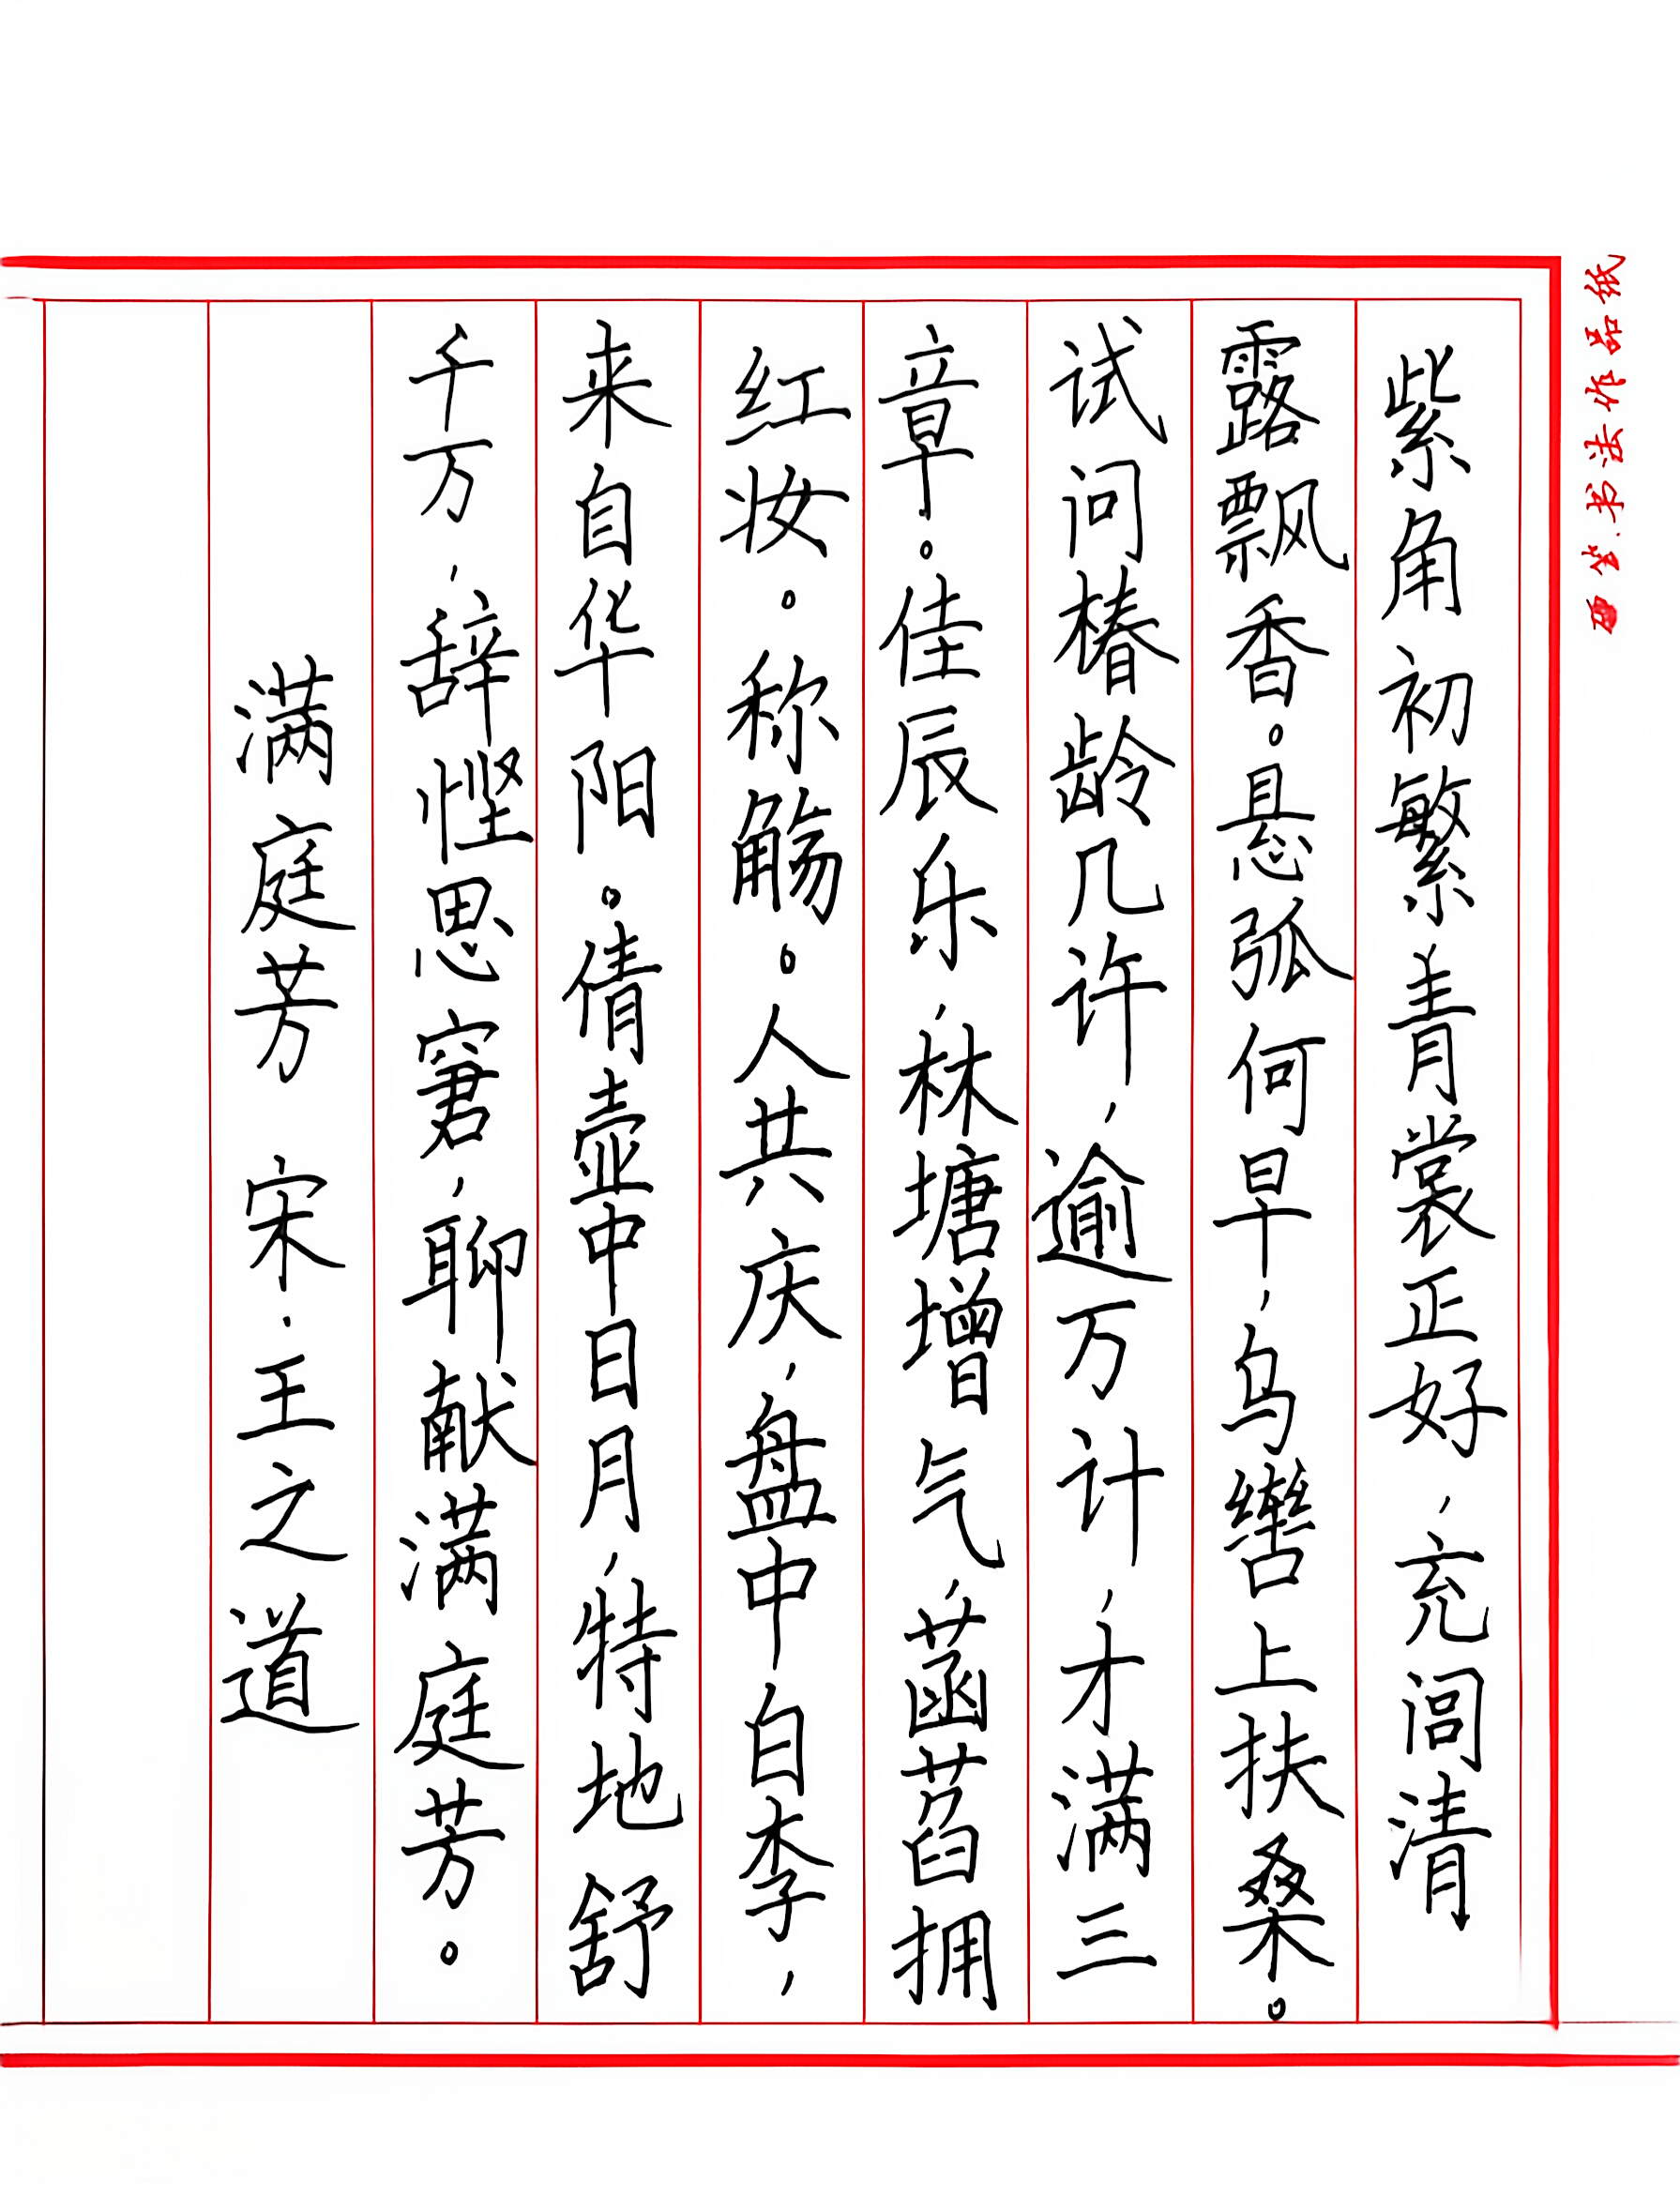 紫角初繁，青裳正好，充闾清
露飘香。悬弧何早，乌辔上扶桑。
试问椿龄几许，逾万计，才满三
章。佳辰乐，林塘增气，菡萏拥
红妆。称觞。人共庆，盘中白李，
来自华阳。倩壶中日月，特地舒
千万，辞悭思窘，聊献满庭芳。
满庭芳 宋·王之道
书法作品纸